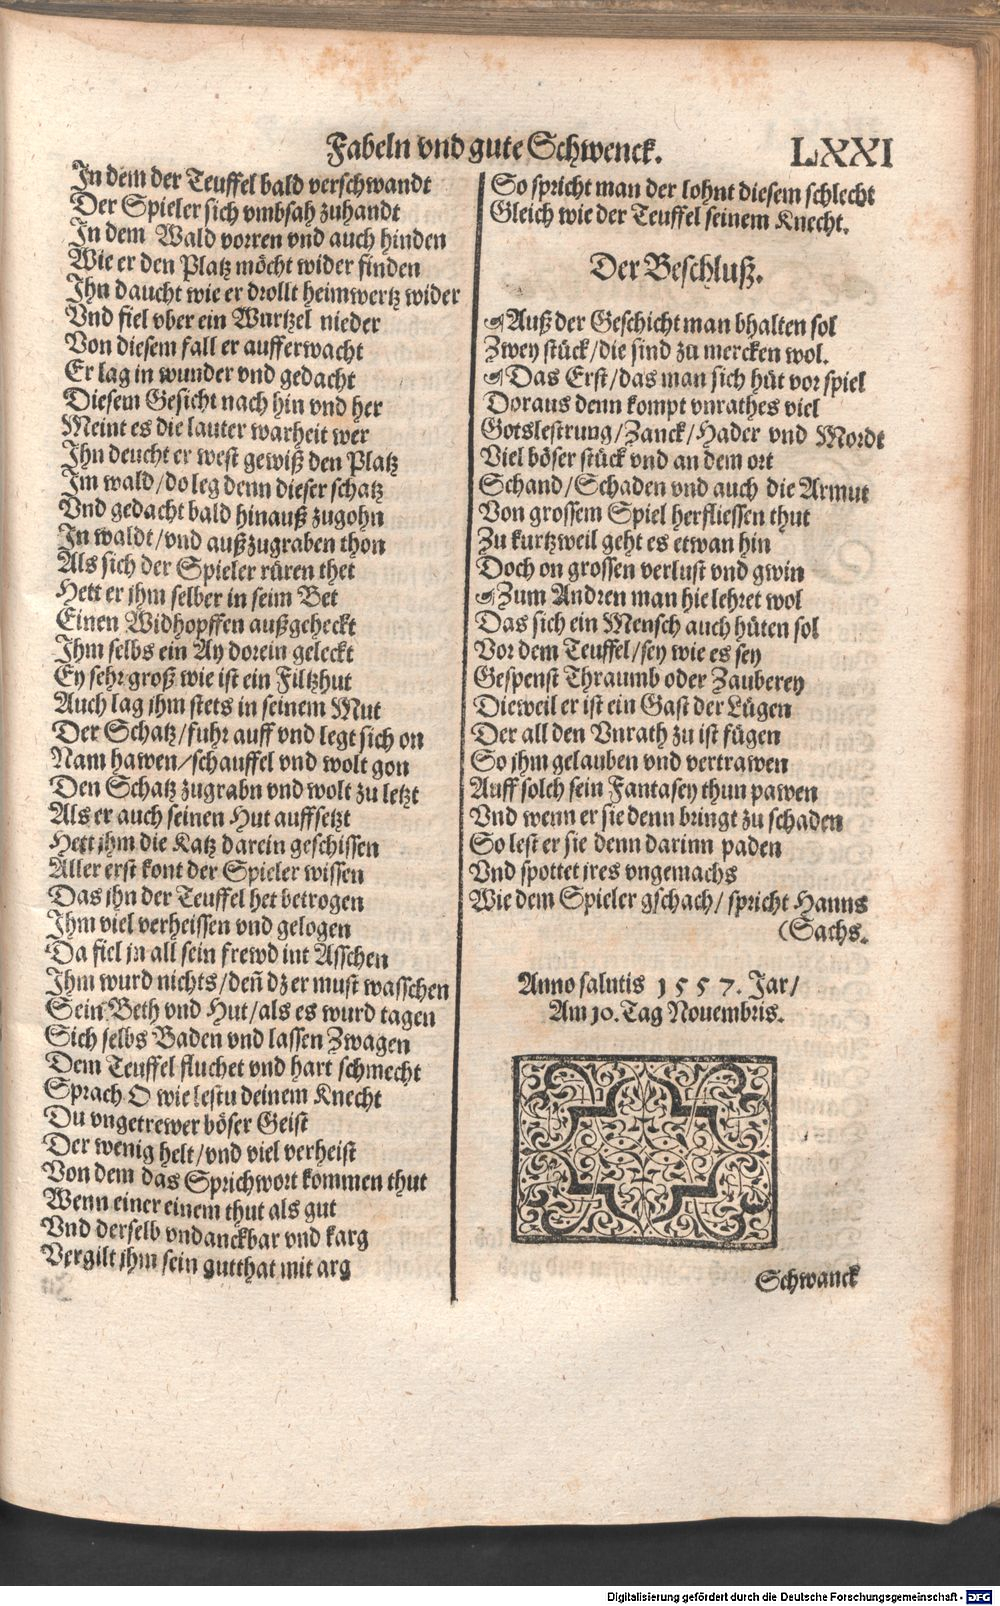 Fabeln vnd gute Schwenck. LXXI
In dem der Teuffel bald verschwandt
Der Spieler sich vmbsah zuhandt
In dem Wald vorren vnd auch hinden
Wie er den Platz möcht wider finden
Ihn daucht wie er drollt heimwertz wider
Vnd fiel vber ein Wurtzel nieder
Von diesem fall er aufferwacht
Er lag in wunder vnd gedacht
Diesem Gesicht nach hin vnd her
Meint es die lauter warheit wer
Ihn deucht er west gewiß den Platz
Im wald/do leg denn dieser schatz
Vnd gedacht bald hinauß zugohn
In waldt/vnd außzugraben thon
Als sich der Spieler rüren thet
Hett er jhm selber in seim Bet
Einen Widhopffen außgeheckt
Ihm selbs ein Ay dorein geleckt
Ey sehr groß wie ist ein Filtzhut
Auch lag jhm stets in seinem Mut
Der Schatz/fuhr auff vnd legt sich on
Nam hawen/schauffel vnd wolt gon
Den Schatz zugrabn vnd wolt zu letzt
Als er auch seinen Hut auffsetzt
Hett jhm die Katz darein geschissen
Aller erst kont der Spieler wissen
Das jhn der Teuffel het betrogen
Ihm viel verheissen vnd gelogen
Da fiel jn all sein frewd int Asschen
Ihm wurd nichts/deñ dz er must wasschen
Sein Beth vnd Hut/als es wurd tagen
Sich selbs Baden vnd lassen Zwagen
Dem Teuffel fluchet vnd hart schmecht
Sprach O wie lestu deinem Knecht
Du vngetrewer böser Geist
Der wenig helt/vnd viel verheist
Von dem das Sprichwort kommen thut
Wenn einer einem thut als gut
Vnd derselb vndanckbar vnd karg
Vergilt jhm sein gutthat mit arg
So spricht man der lohnt diesem schlecht
Gleich wie der Teuffel seinem Knecht.
Der Beschluß.
Auß der Geschicht man bhalten sol
Zwey stück/die sind zu mercken wol.
Das Erst/das man sich hüt vor spiel
Doraus denn kompt vnrathes viel
Gotslestrung/Zanck/Hader vnd Mordt
Viel böser stück vnd an dem ort
Schand/Schaden vnd auch die Armut
Von grossem Spiel herfliessen thut
Zu kurtzweil geht es etwan hin
Doch on grossen verlust vnd gwin
Zum Andren man hie lehret wol
Das sich ein Mensch auch hüten sol
Vor dem Teuffel/sey wie es sey
Gespenst Thraumb oder Zauberey
Dieweil er ist ein Gast der Lügen
Der all den Vnrath zu ist fügen
So jhm gelauben vnd vertrawen
Auff solch sein Fantasey thun pawen
Vnd wenn er sie denn bringt zu schaden
So lest er sie denn darinn paden
Vnd spottet jres vngemachs
Wie dem Spieler gschach/ spricht Hanns
(Sachs.
Anno salutis 1557. Jar/
Am 10. Tag Nouembris.
Schwanck
Digitalisierung gefördert durch die Deutsche Forschungsgemeinschaft - DFG